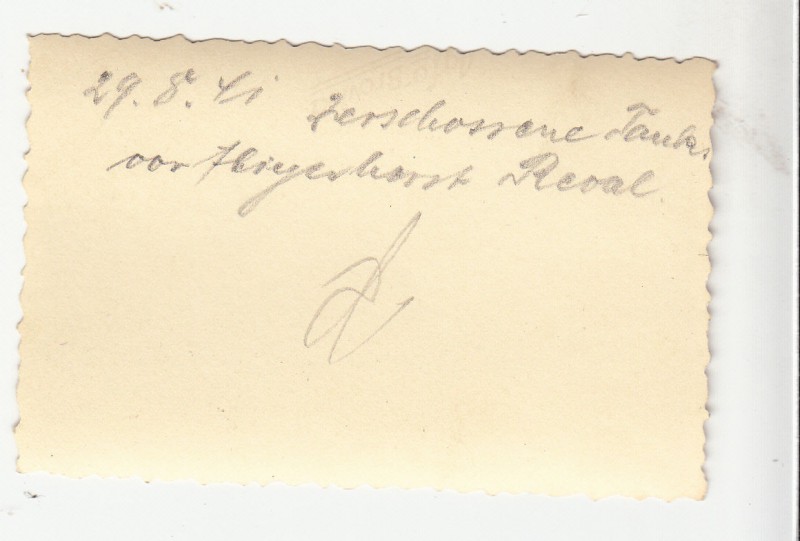 29.8.41 zerschossene Tanks
vor Fliegerhorst Reval.